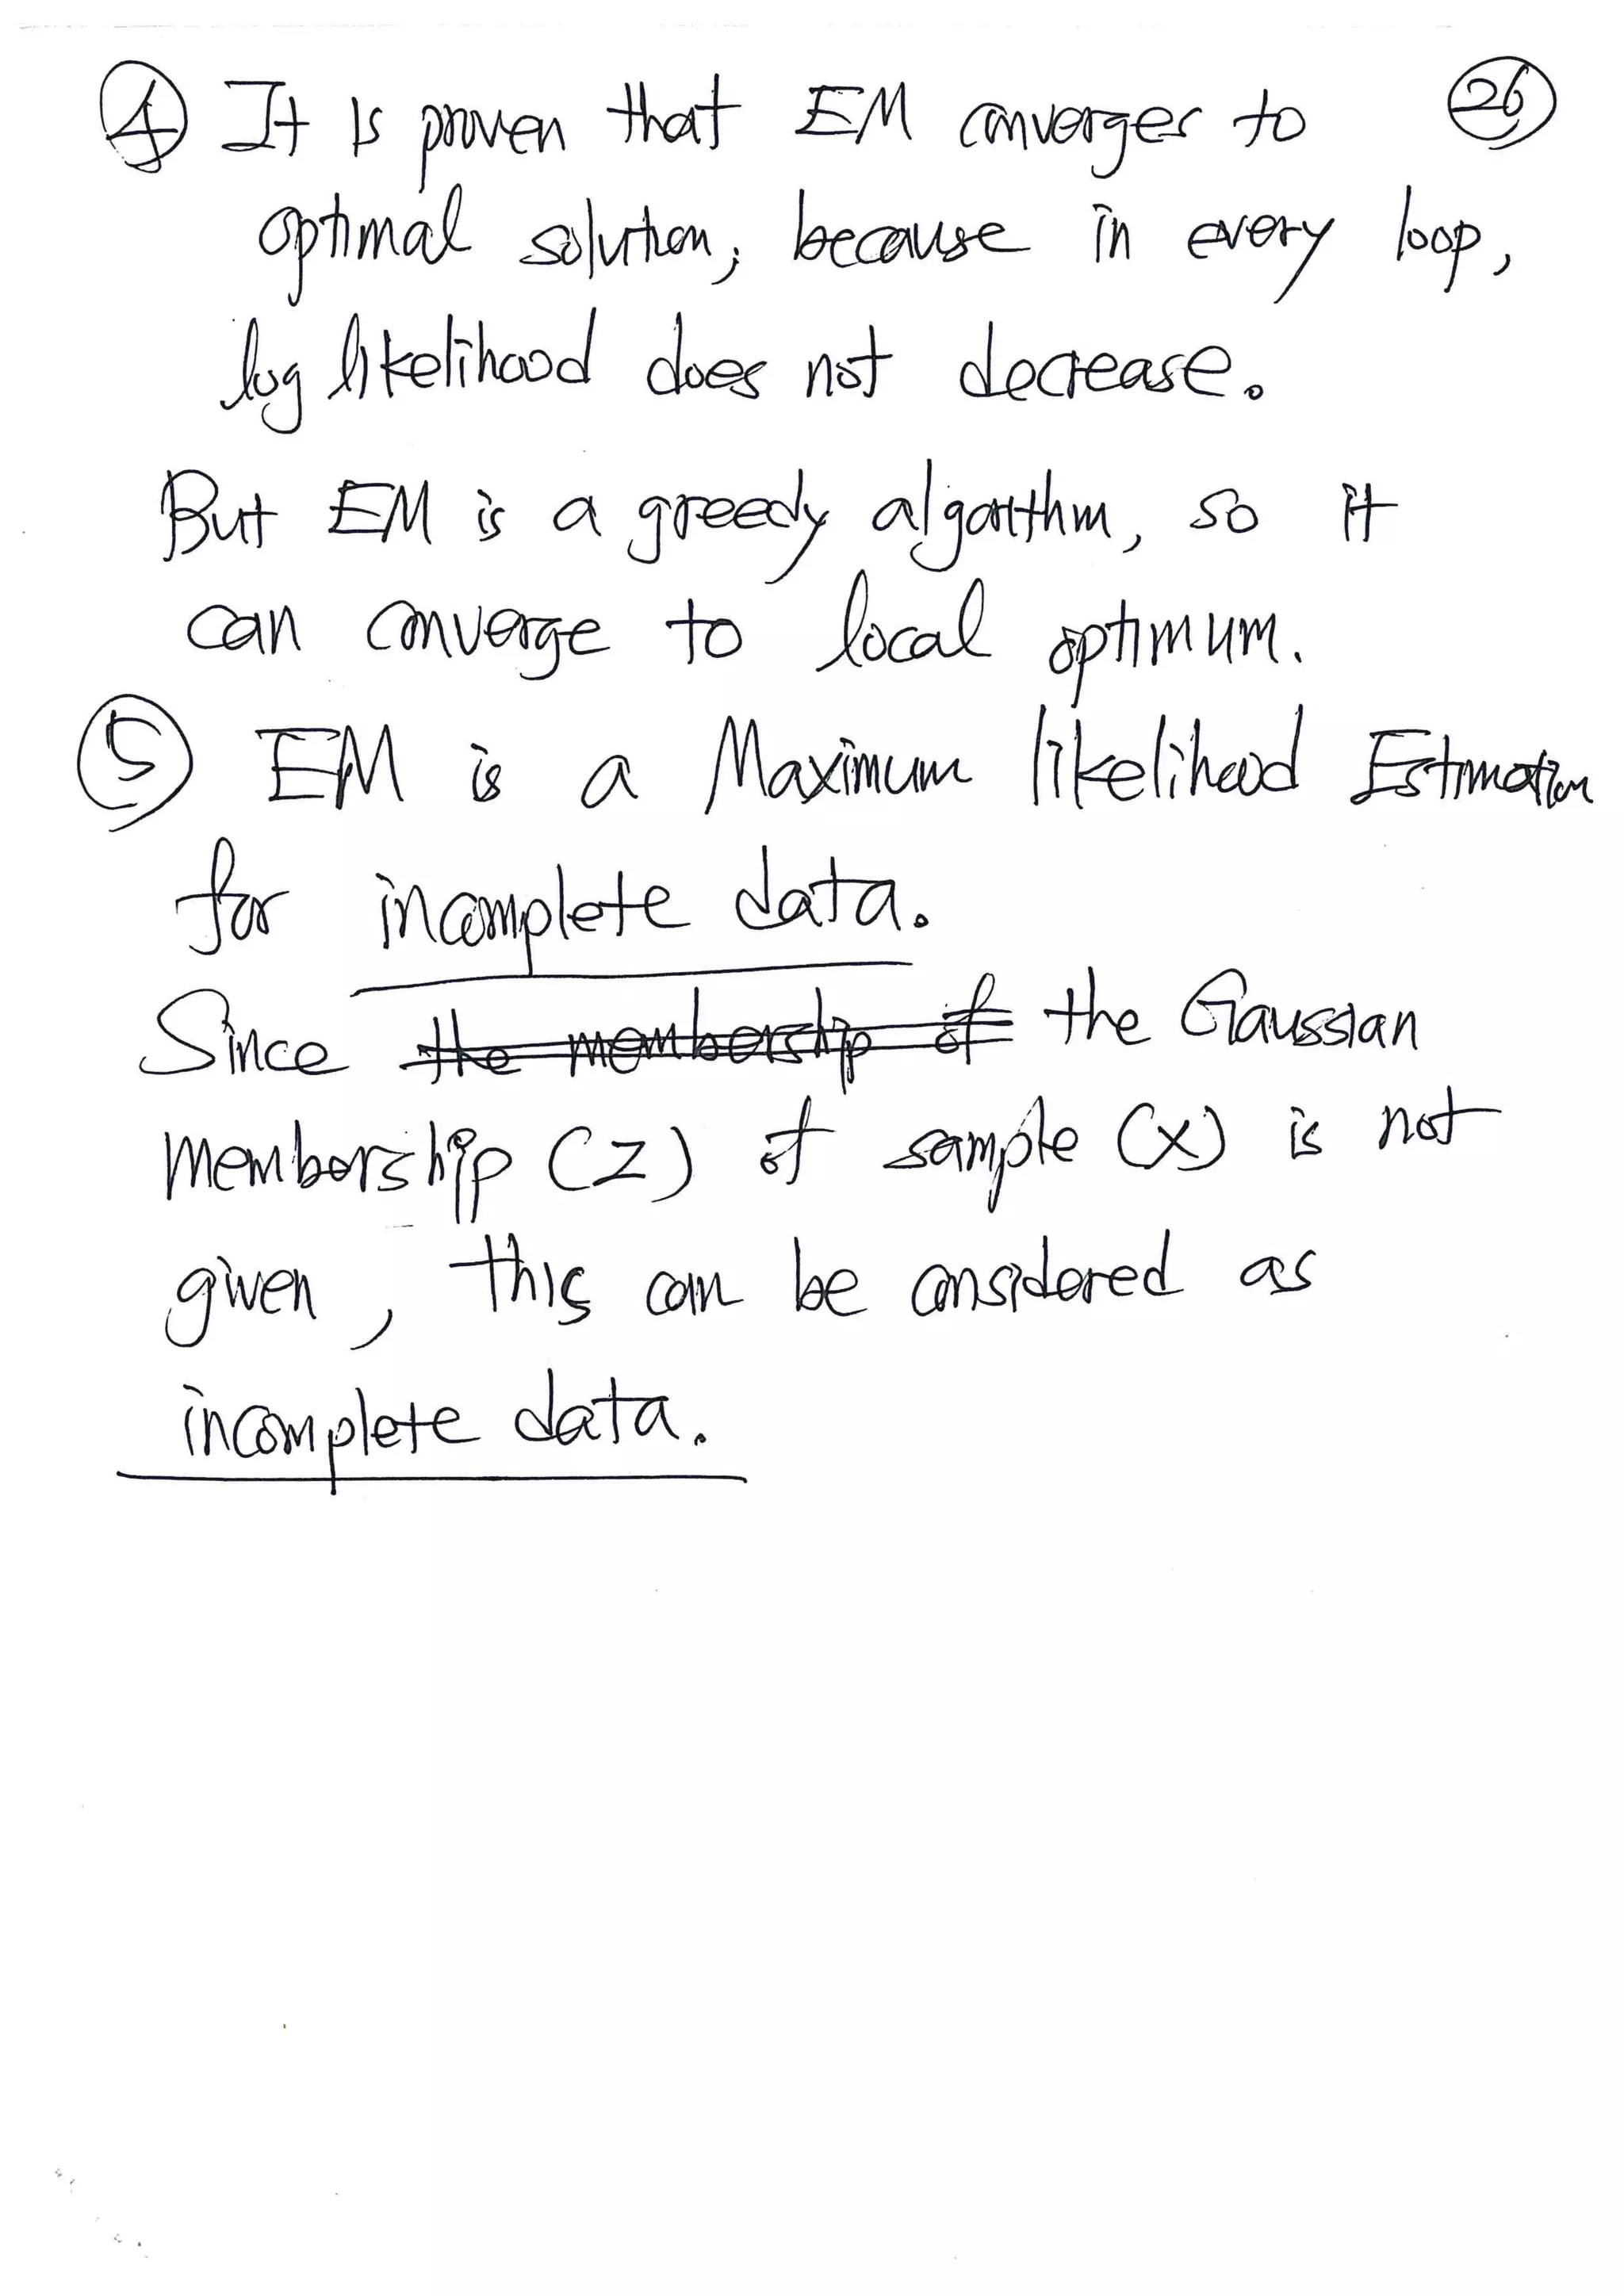 ④ It is proven that EM converges to
㉖
optimal solution, because in every loop,
log likelihood does not decrease.
But EM is a greedy algorithm, so it
can converge to local optimum.
⑤ EM is a Maximum likelihood Estimation
for incomplete data.
Since the membership of the Gaussian
membership (Z) of sample (x) is not
given, this can be considered as
incomplete data.